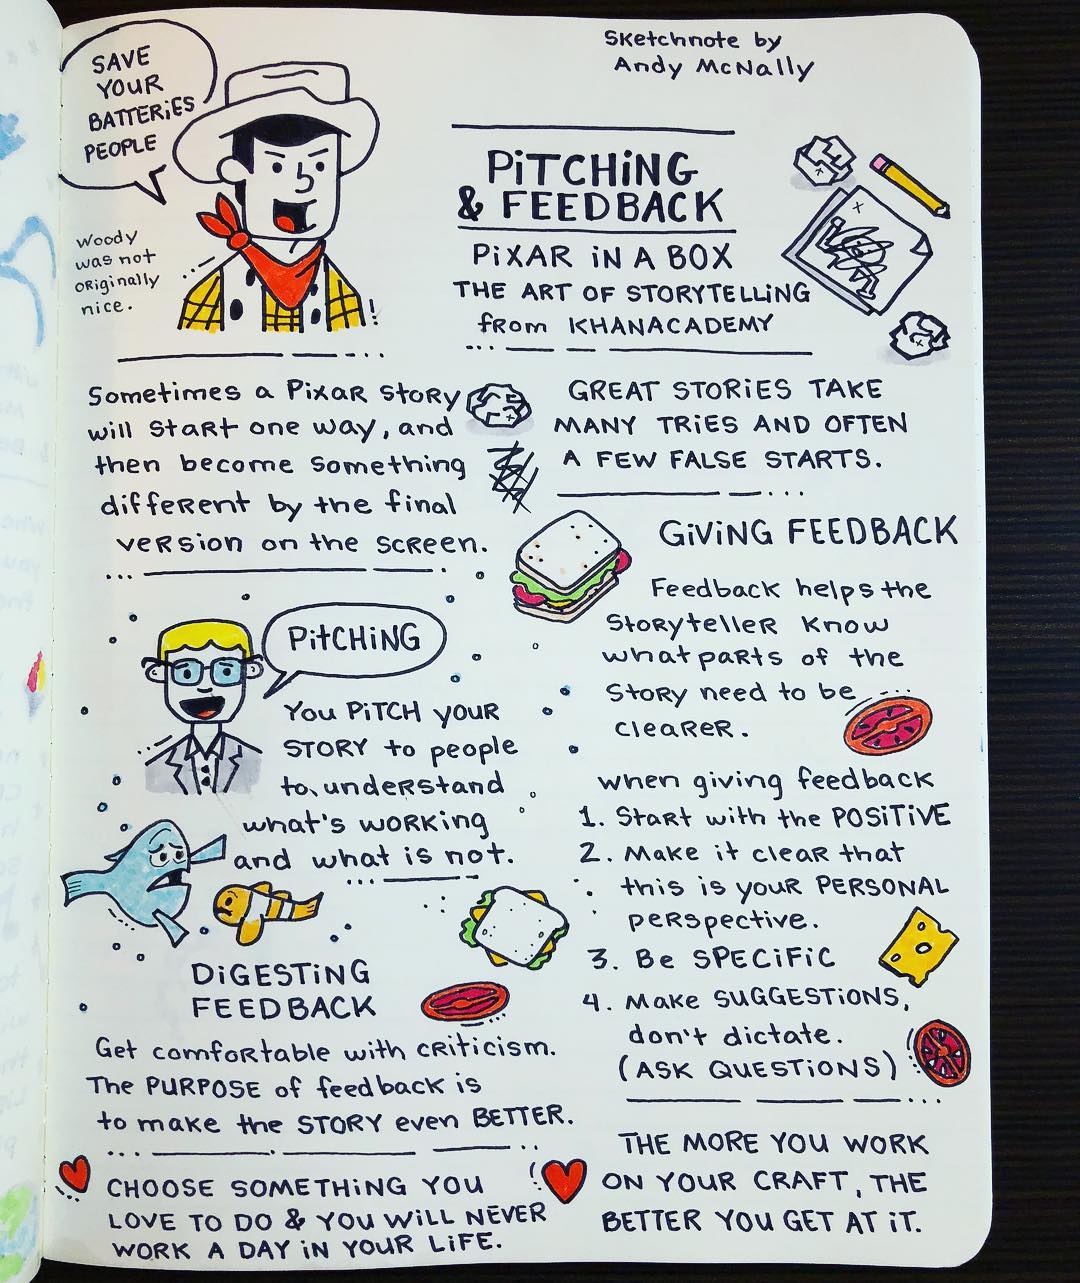 SAVE
YOUR
BATTERiES
PEOPLE
Woody
was not
originally
nice.
Sketchnote by
Andy McNally
PiTCHiNG
& FEEDBACK
PiXAR iN A BOX
THE ART OF STORYTELLiNG
from KHANACADEMY
Sometimes a Pixar story
will start one way, and
then become something
different by the final
version on the screen.
GREAT STORiES TAKE
MANY TRiES AND OFTEN
A FEW FALSE STARTS.
PitCHiNG
You PiTCH your
STORY to people
to understand
what's working
and what is not.
GiViNG FEEDBACK
Feedback helps the
Storyteller know
what parts of the
Story need to be
clearer.
when giving feedback
1. Start with the POSiTiVE
2. Make it clear that
this is your PERSONAL
perspective.
3. Be SPECiFiC
4. Make SUGGESTiONS,
don't dictate.
(ASK QUESTiONS)
DiGESTiNG
FEEDBACK
Get comfortable with criticism.
The PURPOSE of feedback is
to make the STORY even BETTER.
CHOOSE SOMETHiNG YOU
LOVE TO DO & YOU WiLL NEVER
WORK A DAY iN YOUR LiFE.
THE MORE YOU WORK
ON YOUR CRAFT, THE
BETTER YOU GET AT iT.